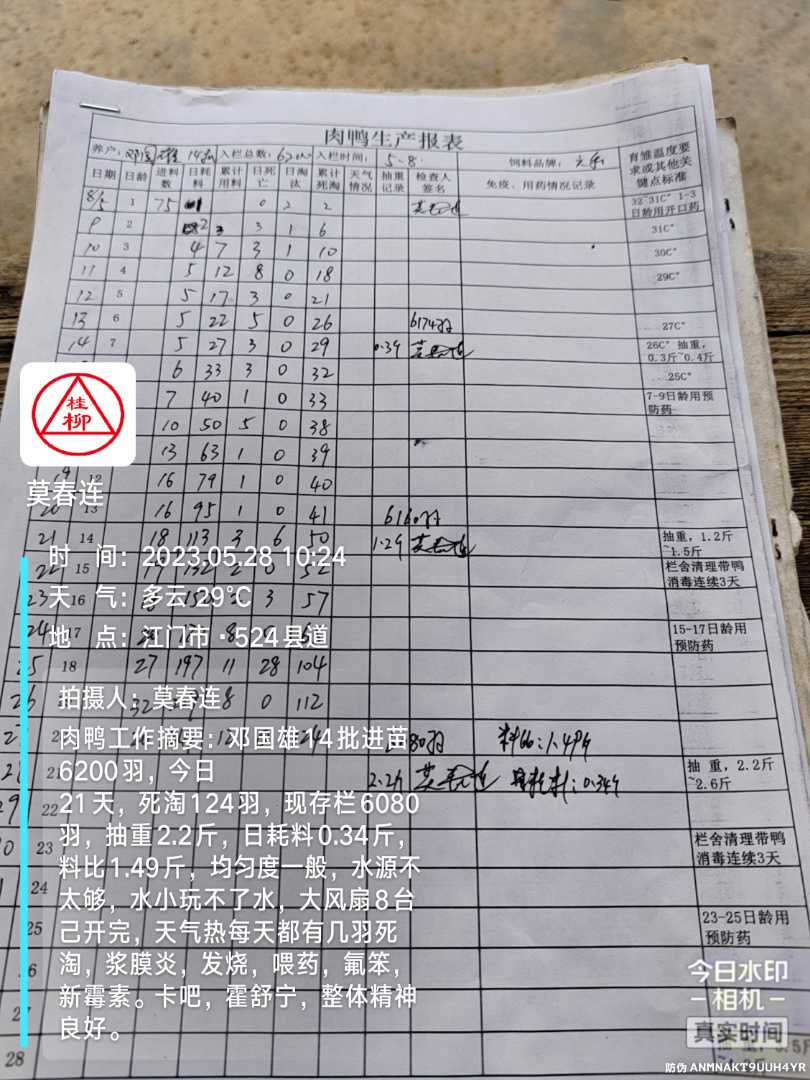 肉鸭生产报表
养户：邓国雄 14批 入栏总数：6200 入栏时间：5.8. 饲料品牌： 育雏温度要求或其他关键点标准
日期 日龄 进料数 日耗料 累计用料 日死亡 日淘汰 累计死淘 天气情况 抽重记录 检查人签名 免疫、用药情况记录
8/5 1 75 0 2 2 莫春连 32~31C° 1-3日龄用开口药
9 2 2 3 3 1 6 31C°
10 3 4 7 3 1 10 30C°
11 4 5 12 8 0 18 29C°
12 5 5 17 3 0 21
13 6 5 22 5 0 26 6174羽 27C°
14 7 5 27 3 0 29 0.39 莫春连 26C° 抽重，0.3斤~0.4斤
6 33 3 0 32 25C°
7 40 1 0 33 7-9日龄用预防药
10 50 5 0 38
13 63 1 0 39
19 12 16 79 1 0 40
20 13 16 95 1 0 41 6160羽
21 14 18 113 3 6 50 1.29 莫春连 抽重，1.2斤~1.5斤
22 15 132 2 0 52 栏舍清理带鸭消毒连续3天
23 16 3 57
24 17 8 15-17日龄用预防药
25 18 27 197 11 28 104
26 32 8 0 112
27 80羽 料比：1.49斤
28 21 2.2斤 莫春连 日耗料：0.34斤 抽 重，2.2斤~2.6斤
29 22
23 栏舍清理带鸭消毒连续3天
24
25 23-25日龄用预防药
28
桂柳
莫春连
时 间：2023.05.28 10:24
天 气：多云 29℃
地 点：江门市·524县道
拍摄人：莫春连
肉鸭工作摘要：邓国雄14批进苗
6200羽，今日
21天，死淘124羽，现存栏6080
羽，抽重2.2斤，日耗料0.34斤，
料比1.49斤，均匀度一般，水源不
太够，水小玩不了水，大风扇8台
己开完，天气热每天都有几羽死
淘，浆膜炎，发烧，喂药，氟笨，
新霉素。卡吧，霍舒宁，整体精神
良好。
今日水印
相机
真实时间
防伪 ANMNAKT9UUH4YR